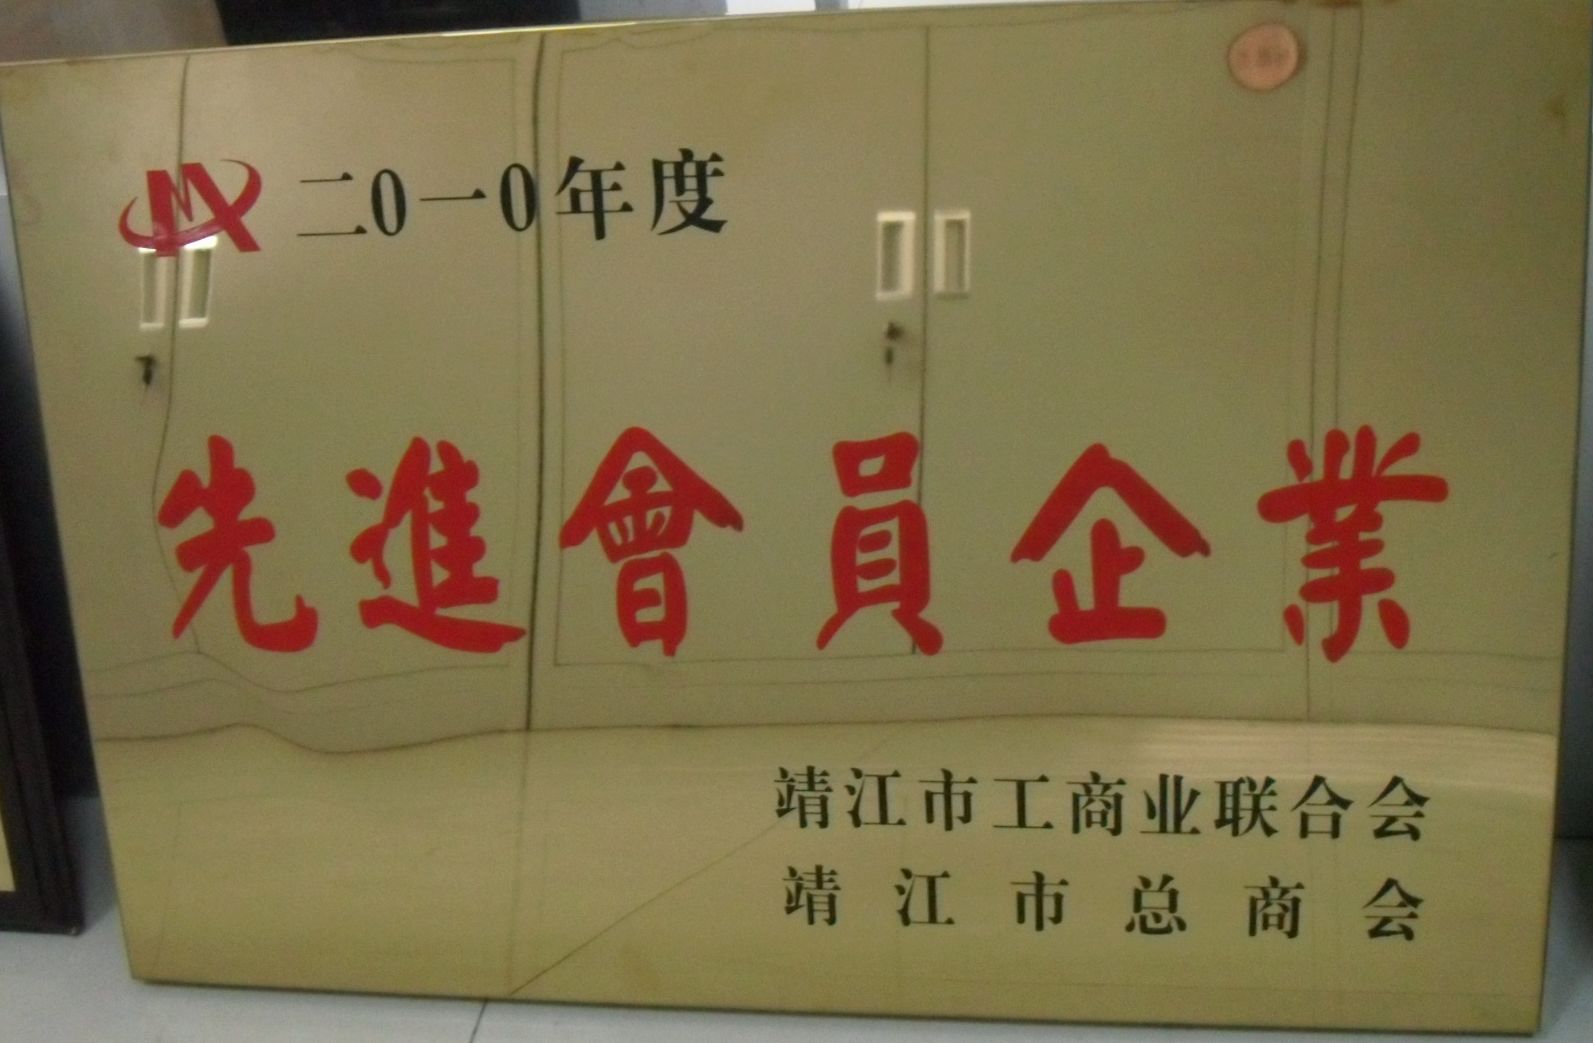 二0一0年度
先進會員企業
靖江市工商业联合会
靖江市总商会